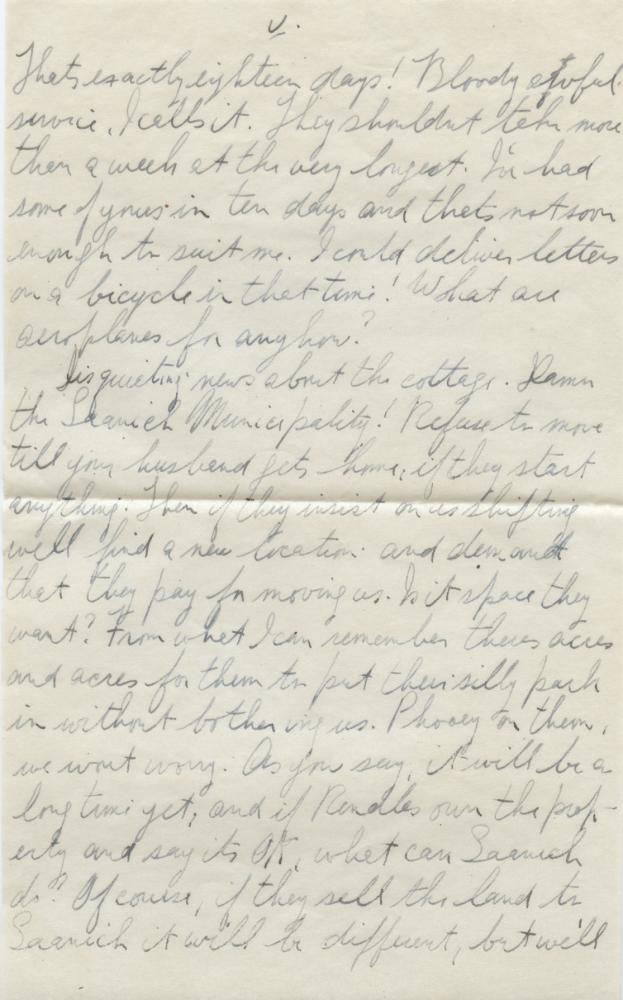 V.
Thats exactly eighteen days! Bloody awful
service, I calls it. They shouldnt take more
than a week at the very longest. I've had
some of yours in ten days and thats not soon
enough to suit me. I could deliver letters
on a bicycle in that time! What are
aeroplanes for anyhow?
Disquieting news about the cottage. Damn
the Saanich Municipality! Refuse to move
till your husband gets home, if they start
anything. Then if they insist on us shifting
we'll find a new location and demand
that they pay for moving us. Is it space they
want? From what I can remember theres acres
and acres for them to put their silly park
in without bothering us. Phooey on them,
we wont worry. As you say, it will be a
long time yet, and if Rendles own the prop-
erty and say its OK, what can Saanich
do? Of course, if they sell the land to
Saanich it will be different, but we'll